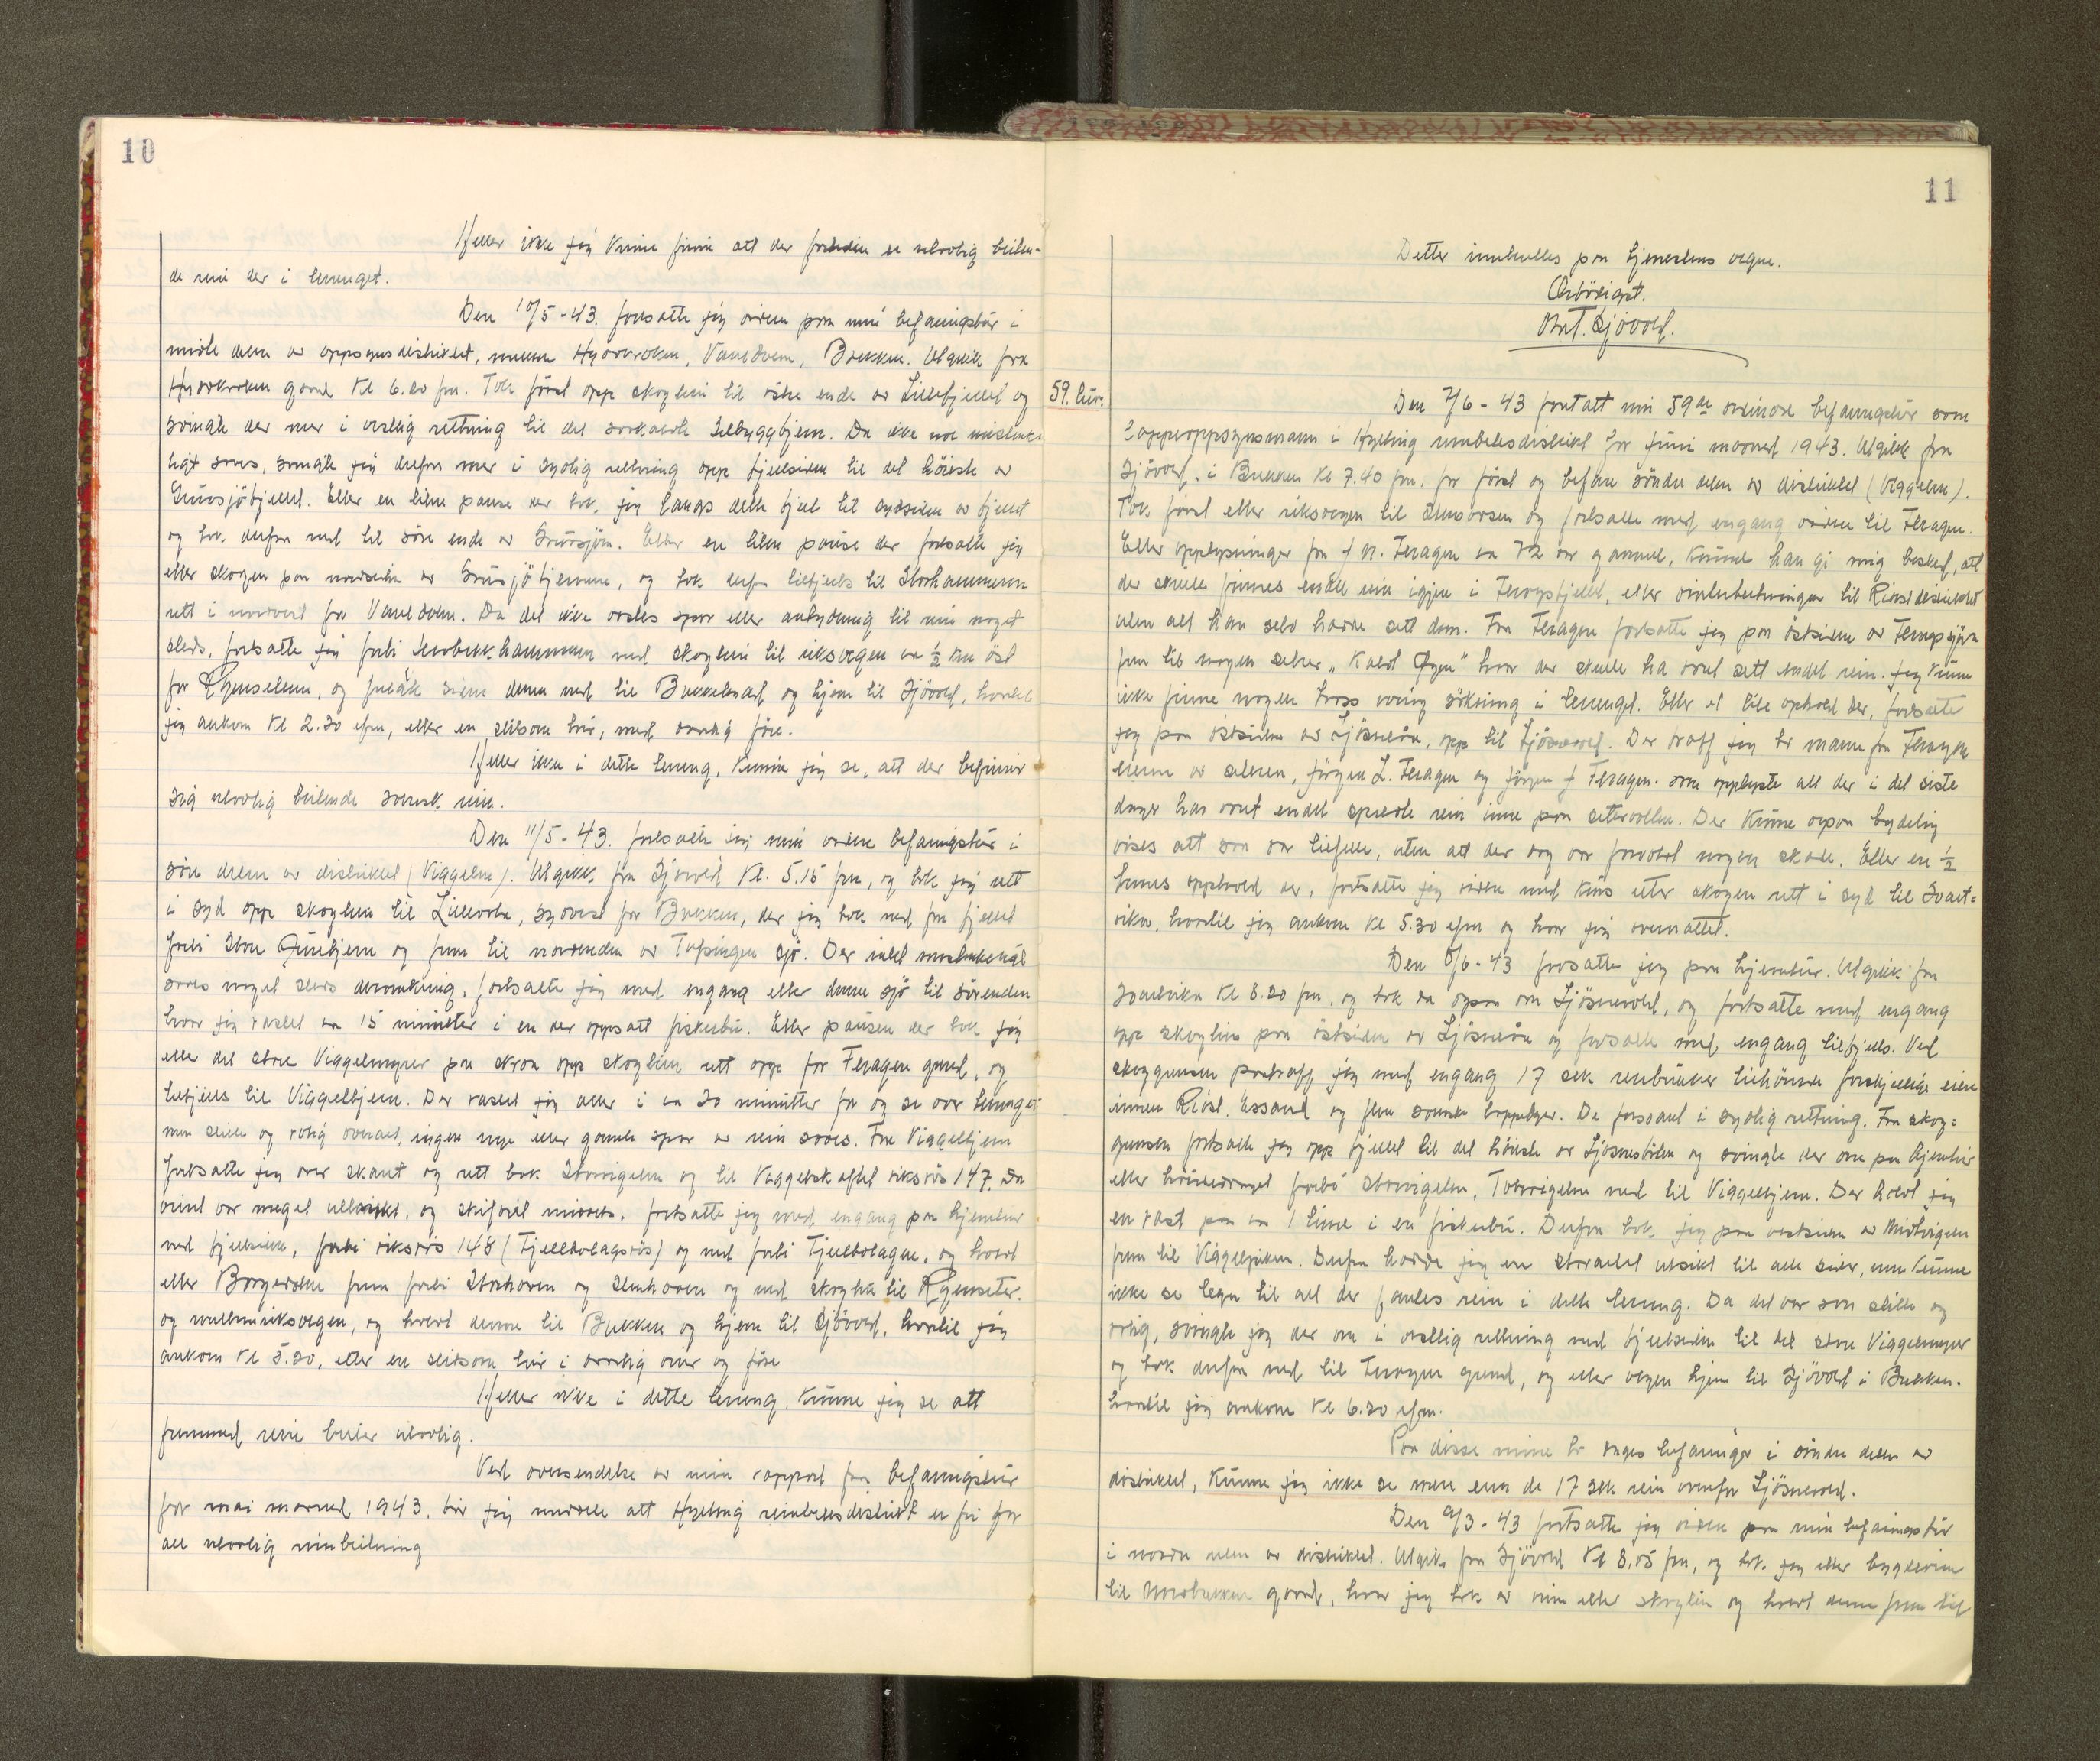 10
Heller ikke jeg kunne finne att der forinden er ulovlig beiten-
de rein der i terrenget.
Den 10/5-43. fortsatte jeg videre paa min befaringstur i
midle delen av oppsynsdistriktet, mellem Hyddkroken, Vauldalen, Brekken. Utgikk fra
Hyddkroken gaard Kl 6.20 fm. Tok först opp skoglien til östre ende av Lillefjellet og
svingte der mer i vestlig rettning til det saakaldte Selbyggtjern. Da ikke noe mistenke-
ligt saaes, svingte jeg derfra mer i sydlig rettning opp fjellsiden til det höieste av
Grüvsjöfjellet. Etter en liten pause der tok jeg langs dette fjell til sydsiden av fjellet
og tok derfra ned til söre ende av Grüvsjön. Etter en liten paüse der fortsatte jeg
etter skogen paa nordsiden av Grüvsjötjernene, og tok derfra tilfjells til Storhammeren
rett i nordvest for Vauldalen. Da det ikke saaes spor eller antydning til rein noget
steds, fortsatte jeg forbi hammeren ned skoglien til riksvegen ca ½ km öst
for Rygenseteren, og fulgte siden denne ned til Brekkebygd og hjem til Sjövold, hvortil
jeg ankom Kl 2.30 efm, etter en slitsom tür, med daarlig före.
Heller ikke i dette terreng, kunne jeg se, att der befinner
sig ulovlig beitende svensk rein.
Den 11/5-43. fortsatte jeg min videre befaringstür i
söre delen av distriktet (Viggelen). Utgikk fra Sjövold Kl. 5.15 fm, og tok jeg rett
i syd opp skoglien til Lillevola, sydvest for Brekken, der jeg tok ned fra fjellet
forbi Store Fünntjern og frem til nordenden av Tufsingen sjö. Der intet mistenkeligt
saaes noget steds deromkring, fortsatte jeg med engang etter denne sjö til sörenden
hvor jeg rastet ca 15 minütter i en der oppsatt fiskebü. Etter paüsen der tok jeg
etter det store Viggelmyrer paa skraa opp skoglien rett opp for Feragen gaard, og
tilfjells til Viggeltjern. Der rastet jeg atter i ca 30 minütter for og se over terrenget
men stille og rolig overalt, ingen nye eller gamle spor av rein saaes. Fra Viggeltjern
fortsatte jeg over skaut og rett bak Storvigelen og til Viggelskaftet riksrös 147. Da
vind var meget ubehagelig, og skiföret mindre, fortsatte jeg med engang paa hjemtur
ned fjellsiden, forbi riksrös 148 (Fjellbolagsrös) og ned forbi Fjellbolagen, og hvert
etter Borgeraasene frem forbi Storhaaen og Stenhaaen og ned skoglia til Rygenseter.
og mellemriksvegen, og hvert denne til Brekken og hjem til Sjövold, hvortil jeg
ankom Kl 5.30, etter en slitsom tür i daarlig veir og före
Heller ikke i dette terreng, kunne jeg se att
fremmed rein beiter ulovlig.
Ved oversendelse av min rapport fra befaringstür
for mai maaned 1943, bör jeg melde att Hylling reinbeitesdistrikt er fri for
all ulovlig reinbeitning
11
Dette innberettes paa tjenestens vegne.
Ærbödigst.
Ant. Sjövold.
59. tür.
Den 7/6-43 foretatt min 59de ordinære befaringstür som
Lappeoppsynsmann i Hylling reinbeitesdistrikt for Jüni maaned 1943. Utgikk fra
Sjövold i Brekken Kl 7.40 fm, for först og befare söndre delen av distriktet (Viggelen).
Tok först etter riksvegen til Stensaasen og fortsatte med engang videre til Feragen.
Etter opplysninger fra J.N. Feragen ca 72 aar gammel, kunne han gi mig beskjed, att
der skulle finnes endel rein igjen i Feragsfjellet, etter omlutbetningen til Riastdistriktet
uten att han selv hadde sett dem. Fra Feragen fortsatte jeg paa östsiden av Feragsjön
frem til nogen setrer "Kaldt Öyen" hvor der skulle ha vært sett endel rein. Jeg kunne
ikke finne nogen tross ivrig söksning i terrenget. Etter et lite ophold der, fortsatte
jeg paa östsiden av Ljösneaan, opp til Ljösnevold. Der traff jeg to mann fra Feragen
eierene av seteren, Jörgen L. Feragen og Jörgen J Feragen. som opplyste att der i det siste
dager har vært endel spredte rein inne paa setervollen. Der kunne ogsaa tydelig
vises att saa var tilfelle, uten att der dog var forvoldt nogen skade. Etter en ½
times opphold der, fortsatte jeg videre med kürs etter skogen rett i syd til Svart-
vika, hvortil jeg ankom Kl 5.30 efm og hvor jeg overnattet.
Den 8/6-43 fortsatte jeg paa hjemtür. Utgikk fra
Svartvika Kl 8.20 fm, og tok da ogsaa om Ljösnevold, og fortsatte med engang
opp skoglien paa östsiden av Ljösneaan og fortsatte med engang tilfjells. Ved
skoggrensen paatraff jeg med engang 17 stk reinbükker tilhörende forskjellige eiere
innen Riast, Essand og flere svenske lappebyer. De forsvant i sydlig rettning. Fra skog-
grensen fortsatte jeg opp fjellet til det höieste av Ljösnestöten og svingte der om paa hjemtür
etter höidedraget forbi Storvigelen, Tvervigelen ned til Viggeltjern. Der holdt jeg
en rast paa ca 1 time i en fiskebü. Derfra tok jeg paa vestsiden av Midtvigelen
frem til Viggelpiken. Derfra hadde jeg en storartet utsikt til alle sider, men kunne
ikke se tegn til att der fantes rein i dette terreng. Da det var saa stille og
rolig, svingte jeg der om i vestlig rettning ned fjellsiden til det store Viggelmyrer
og tok derfra ned til Feragen grend, og etter vegen hjem til Sjövold i Brekken.
hvortil jeg ankom Kl 6.20 efm.
Paa disse mine to dages befaringer i söndre delen av
distriktet, kunne jeg ikke se mere enn de 17 stk rein ovenfor Ljösnevold.
Den 9/3-43 fortsatte jeg videre paa min befaringstür
i nordre delen av distriktet. Utgikk fra Sjövold Kl 8.05 fm, og tok jeg etter bygdevegen
til Mosbakken gaard, hvor jeg tok av veien etter skoglien og hvert denne frem til